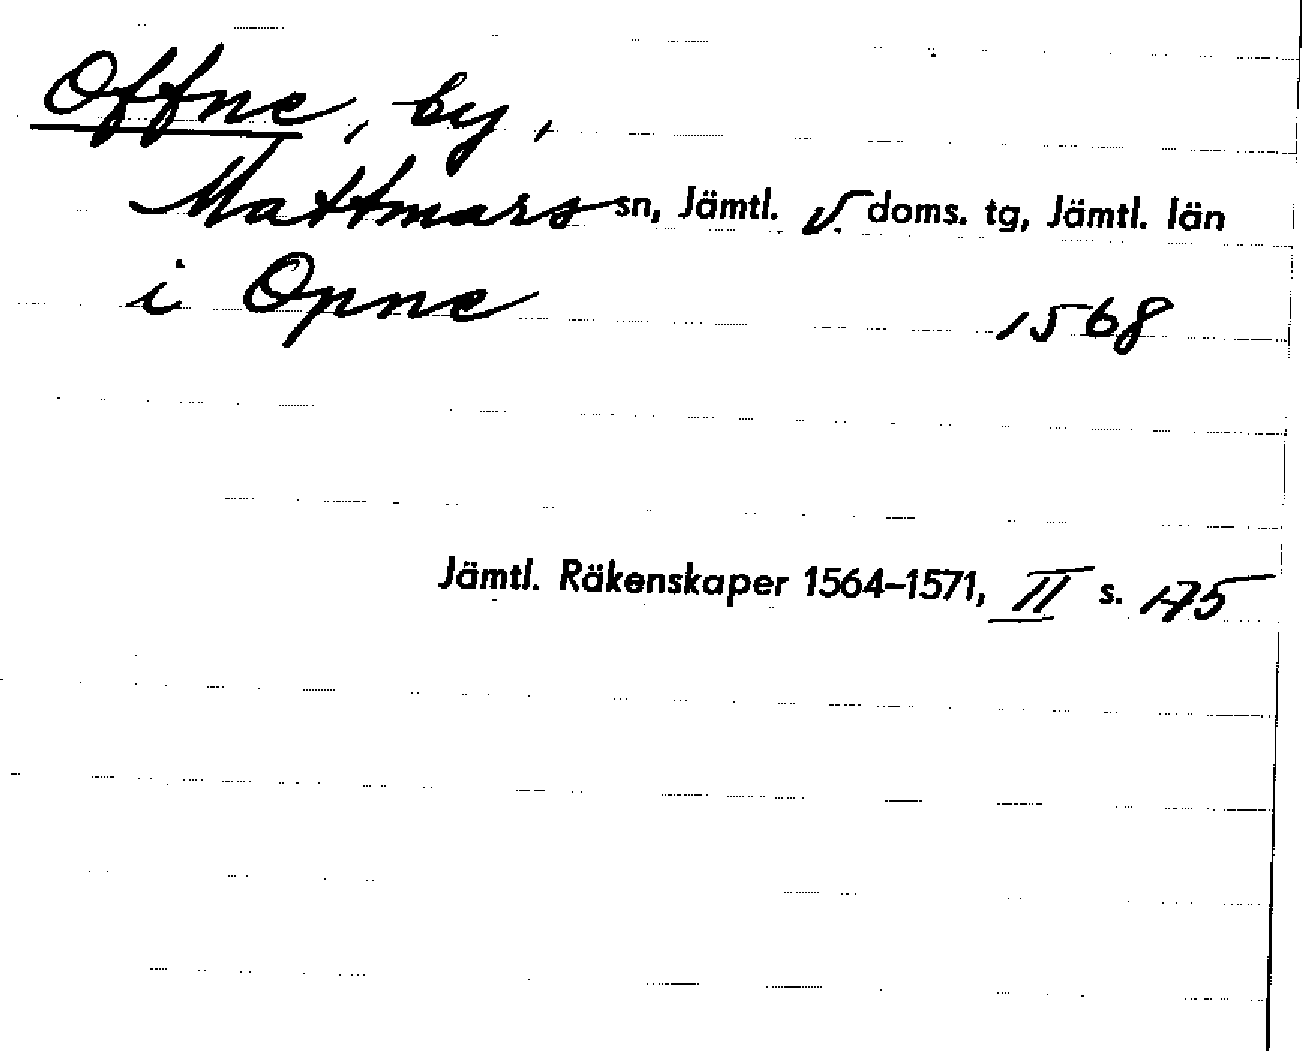 Offne, by,
Mattmars sn, Jämtl. v. doms. tg, Jämtl. län
i Opne 1568
Jämtl. Räkenskaper 1564–1571, II s. 175